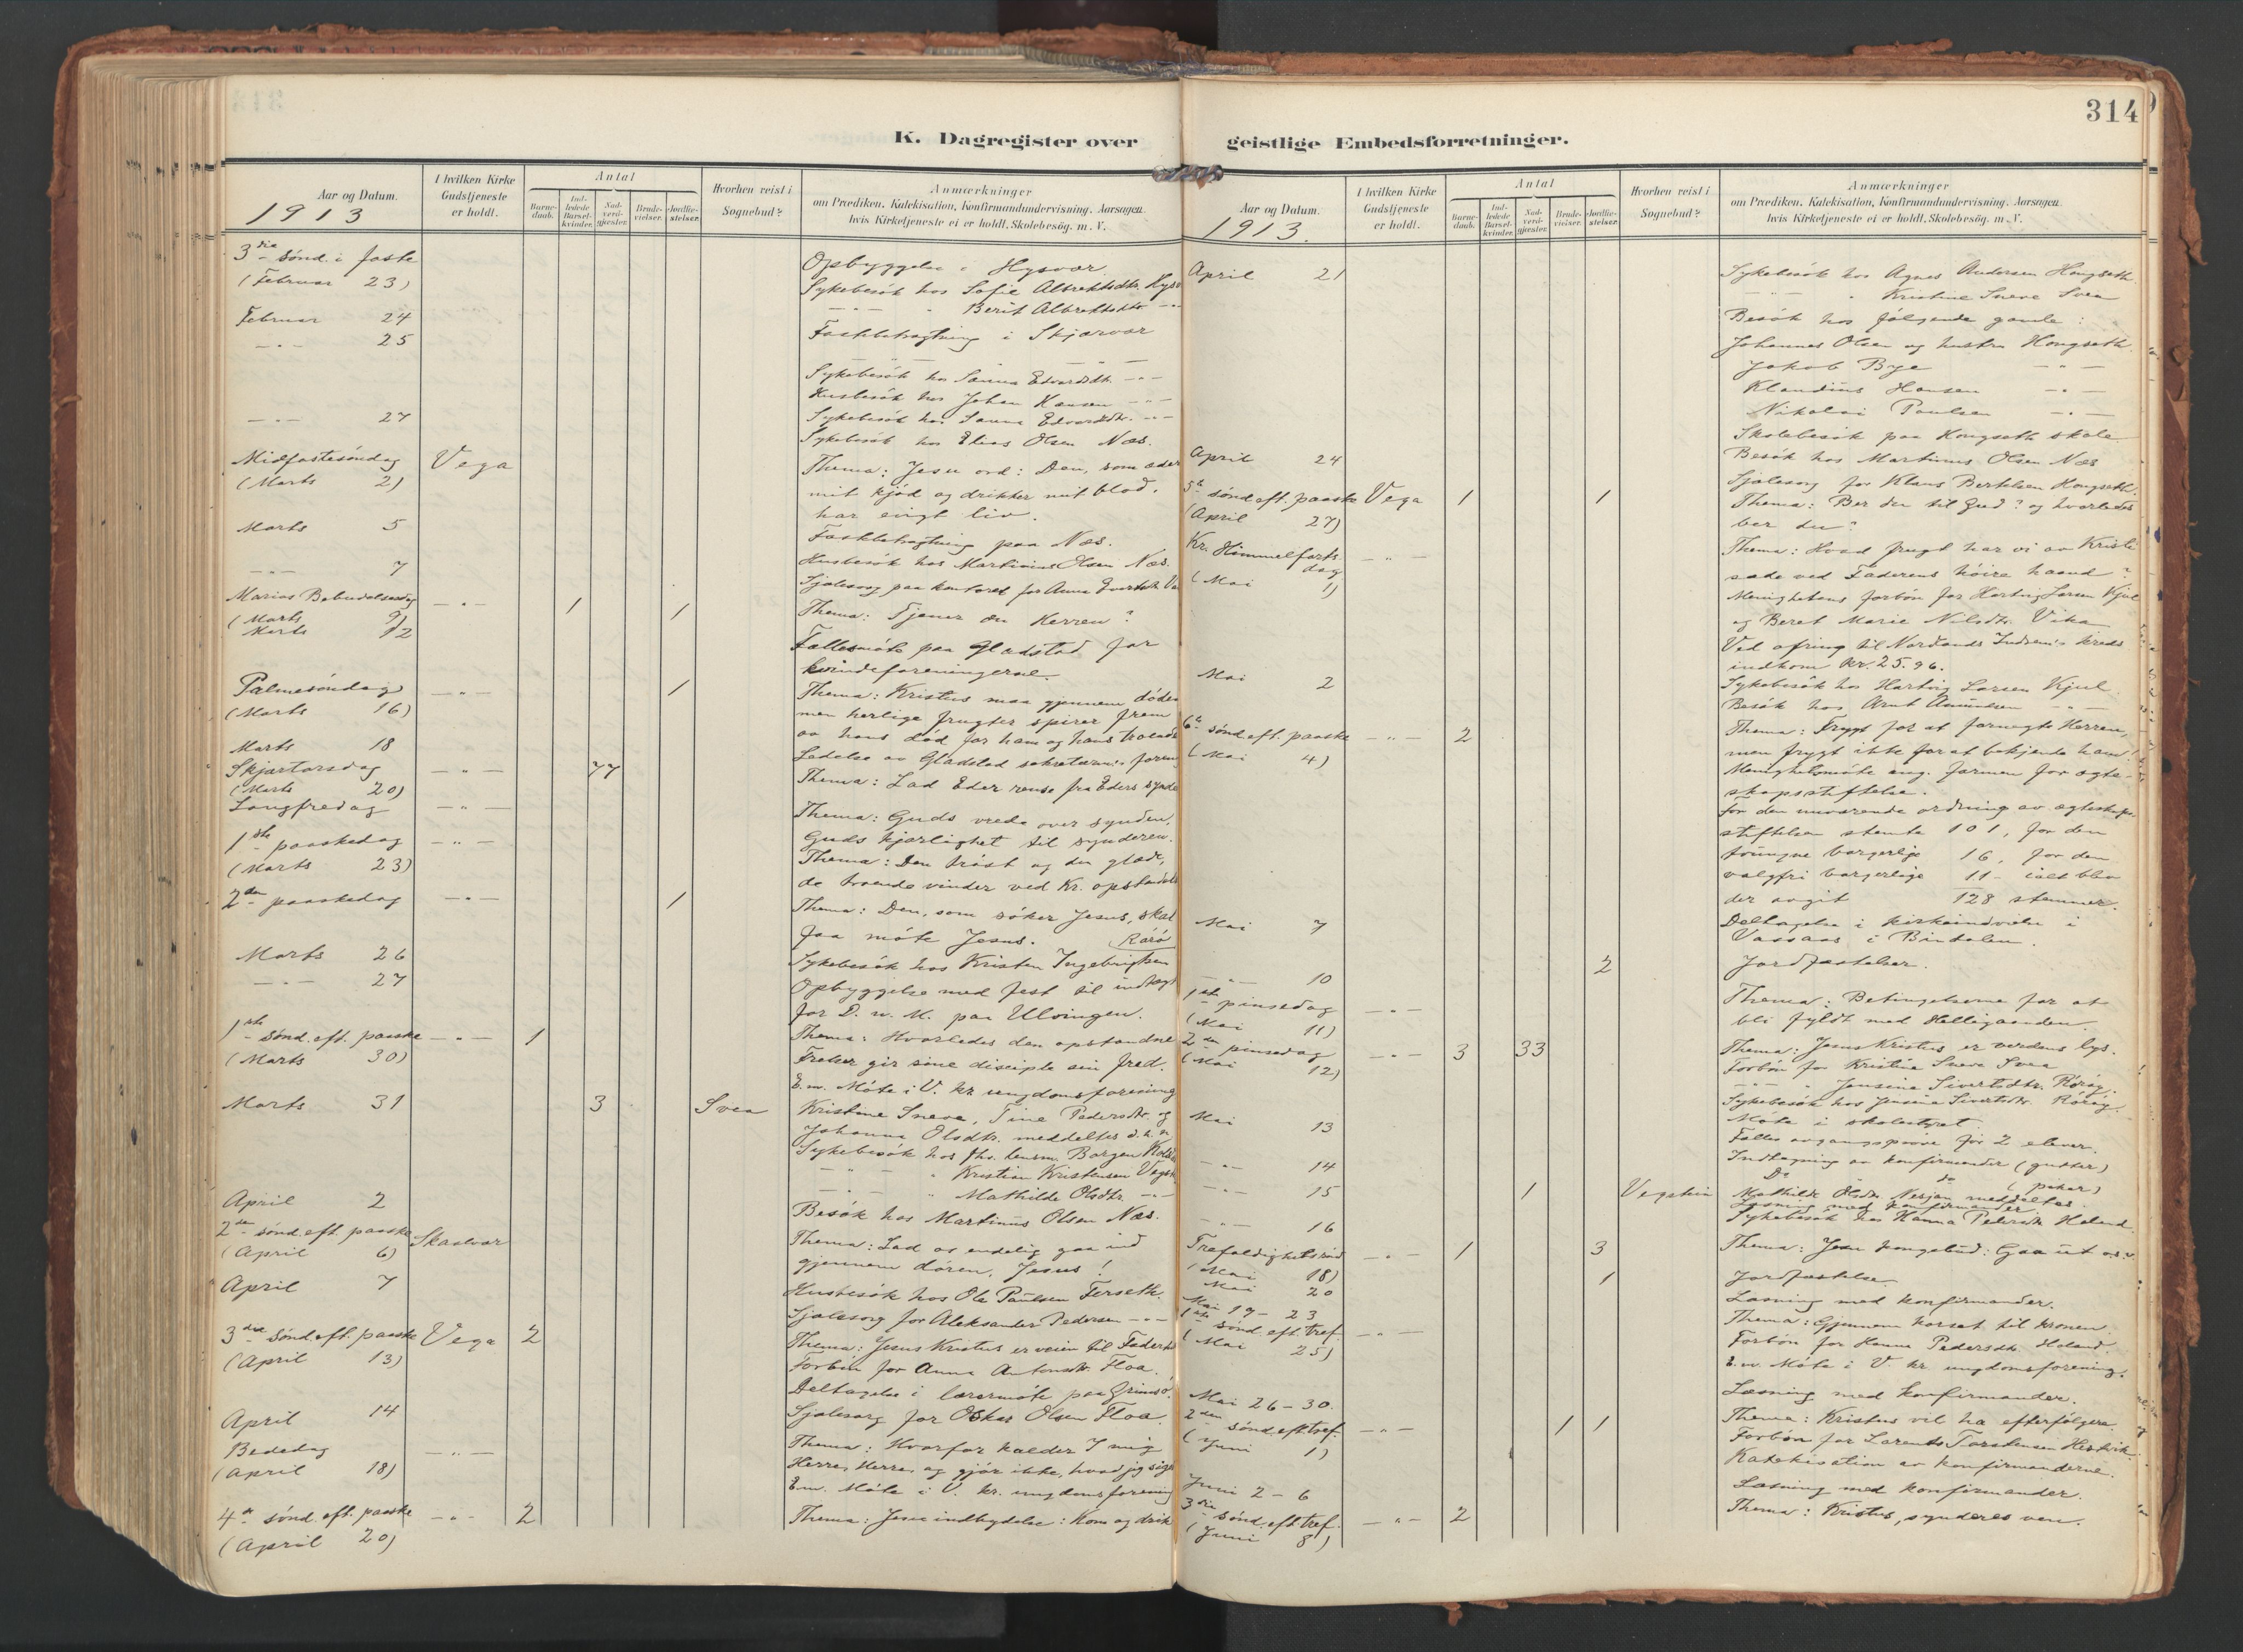 314
K. Dagregister over geistlige Embedsforretninger.
Aar og Datum.
1913
I hvilken Kirke Gudstjeneste er holdt.
Antal
Barne-daab.
Ind-ledede Barsel-kvinder.
Nad-verd-gjester.
Brude-vielser.
Jordfæ-stelser.
Hvorhen reist i Sognebud?
Anmærkninger
om Prædiken, Katekisation, Konfirmandundervisning, Aarsagen,
hvis Kirketjeneste ei er holdt, Skolebesøg. m. V.
3die sønd. i faste
(Februar 23)
Opbyggelse i Hysvær
Sykebesøk hos Sofie Albrektsdtr.
Februar 24
— " — " Berit Albrektsdtr. — " —
— " — 25
Fastebetragtning i Skjærvær
— " — — " —
Sykebesøk hos Sanna Edvardsdtr. — " —
Husbesøk hos Johan Hansen — " —
— " — 27
Sykebesøk hos Sanna Edvardsdtr. — " —
Sykebesøk hos Elias Olsen Næs.
Midfastesøndag Vega
(Marts 2)
Thema: Jesu ord: Den, som æder
mit kjød og drikker mit blod,
har evigt liv.
Marts 5
Fastebetragtning paa Næs.
— " — 7
Husbesøk hos Martinus Olsen Næs.
Sjælesorg paa kontoret for Anna
Marias Bebudelsesdag — " — 1 1
(Marts 9)
Thema: Tjener du Herren?
Marts 12
Fællesmøte paa Gladstad for
kvindeforeningerne.
Palmesøndag — " — 1
(Marts 16)
Thema: Kristus maa gjennem døden
men herlige frugter spirer frem
av hans død for ham og hans troende
Marts 18
Ledelse av Gladstad
Skjærtorsdag — " — 77
(Marts 20)
Thema: Lad Eder rense fra Eders synder
Langfredag — " —
Thema: Guds vrede over synden,
Guds kjærlighet til synderen.
1ste paaskedag — " —
(Marts 23)
Thema: Den trøst og den glæde,
de troende vinder ved Kr. opstandelse
2den paaskedag — " — 1
Thema: Den, som søker Jesus, skal
faa møte Jesus. Rørø
Marts 26
Sykebesøk hos Kristen Ingebrigtsen
— " — 27
Opbyggelse med fest til indtægt
for D. n. M. paa Ulvingen.
1ste sønd. eft. paaske — " — 1
(Marts 30)
Thema: Hvorledes den opstandne
Frelser gir sine disciple sin fred.
E.m. Møte i V. kr. ungdomsforening
Marts 31 3 Svea
Kristine Sneve, Tine Pedersdtr. og
Johanna Olsdtr. meddeltes d. h. n.
Sykebesøk hos fhv. lensm. Borgen
— " — " Kristian Kristensen
— " — " Mathilde Olsdtr. — " —
April 2
Besøk hos Martinus Olsen Næs.
2den sønd. eft. paaske Skaalvær
(April 6)
Thema: Lad os endelig gaa ind
gjennem døren, Jesus!
April 7
Husbesøk hos Ole Paulsen Ferseth.
Sjælesorg for Aleksander Pedersen — " —
3die sønd. eft. paaske Vega 2
(April 13)
Thema: Jesus Kristus er veien til Faderen
Forbøn for Anna Antonsdtr. Floa.
Deltagelse i lærermøte paa Grimsø.
April 14
Sjælesorg for Oskar Olsen Floa.
Bededag — " —
(April 18)
Thema: Hvorfor kalder I mig
Herre, Herre, og gjør ikke, hvad jeg siger
E.m. Møte i V. kr. ungdomsforening
4de sønd. eft. paaske — " — 2
(April 20)
Thema: Jesu indbydelse: Kom og drik
Aar og Datum.
1913.
I hvilken Kirke Gudstjeneste er holdt.
Antal
Barne-daab.
Ind-ledede Barsel-kvinder.
Nad-verd-gjester.
Brude-vielser.
Jordfæ-stelser.
Hvorhen reist i Sognebud?
Anmærkninger
om Prædiken, Katekisation, Konfirmandundervisning, Aarsagen,
hvis Kirketjeneste ei er holdt, Skolebesøg. m. V.
April 21
Sykebesøk hos Agnes Andersen Hongseth
— " — " Kristine Sneve Svea
Besøk hos følgende gamle:
Johannes Olsen og hustru Hongseth.
Jakob Bye — " —
Klaudius Hansen — " —
Nikolai Paulsen — " —
Skolebesøk paa Hongseth skole
April 24
Besøk hos Martinus Olsen Næs
Sjælesorg for Klaus Bertelsen Hongseth.
5te sønd. eft. paaske Vega 1 1
(April 27)
Thema: Ber du til Gud? og hvorledes
ber du?
Kr. Himmelfarts-
dag — " —
(Mai 1)
Thema: Hvad frugt har vi av Kristi
sæde ved Faderens høire haand?
Menighetens forbøn for Hartvig Larsen Kjul
og Beret Marie Nilsdtr. Vika
Ved ofring til Nordlands Indrem.s kreds
indkom kr. 25.96.
Mai 2
Sykebesøk hos Hartvig Larsen Kjul.
Besøk hos Arnt Amundsen — " —
6te sønd. eft. paaske — " — 2
(Mai 4)
Thema: Frygt for at fornegte Herren,
men frygt ikke for at bekjende ham!
Menighetsmøte ang. formen for ægte-
skapsstiftelse.
For den nuværende ordning av ægteskaps-
stiftelsen stemte 101, for den
tvungne borgerlige 16, for den
valgfri borgerlige 11 - ialt blev
der avgit 128 stemmer.
Mai 7
Deltagelse i kirkeindvielse i
Vassaas i Bindalen.
— " — 10 2
Jordfæstelser.
1ste pinsedag — " —
(Mai 11)
Thema: Betingelserne for at
bli fyldt med Helligaanden.
2den pinsedag — " — 3 33
(Mai 12)
Thema: Jesus Kristus er verdens lys.
Forbøn for Kristine Sneve Svea
— " — " Jensine Sivertsdtr. Rørøy.
Sykebesøk hos Jensine Sivertsdtr. Rørøy.
Mai 13
Møte i skolestyret.
Fælles avgangsprøve for 2 elever.
— " — 14
Indtegning av konfirmander (gutter)
Do do (piker)
— " — 15 1 Vegstein
Mathilde Olsdtr. Nesjan meddeltes
Læsning med konfirmander
— " — 16
Sykebesøk hos Hanna Pedersdtr. Holand
Trefoldighetssønd. — " — 1 3
(Mai 18)
Thema: Jesu kongebud: Gaa ut o.s.v.
Mai 20 1
Jordfæstelse
Mai 19 - 23
Læsning med konfirmander.
1ste sønd. eft. tref. — " —
(Mai 25)
Thema: Gjennem korset til kronen
Forbøn for Hanna Pedersdtr. Holand.
E.m. Møte i V. kr. ungdomsforening.
Mai 26 - 30.
Læsning med konfirmander.
2den sønd. eft. tref. — " — 1 1
(Juni 1)
Thema: Kristus vil ha efterfølgere
Forbøn for Lorents Torstensen
Katekisation av konfirmanderne.
Juni 2 - 6
Læsning med konfirmander.
3die sønd. eft. tref. — " — 2
(Juni 8)
Thema: Kristus, synderes ven.